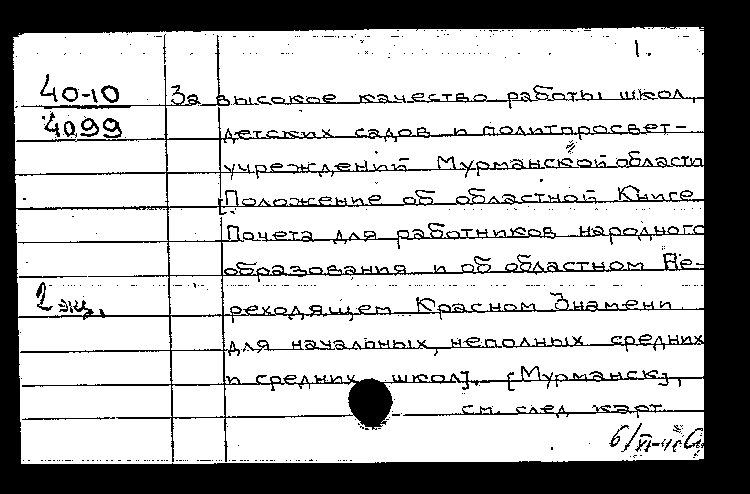 1.
40-10
4099
За высокое качество работы школ,
детских садов и политпросвет-
учреждений Мурманской области
[Положение об областной Книге
Почета для работников народного
образования и об областном Пе-
2 экз.
реходящем Красном Знамени
для начальных, неполных средних
и средних школ]. [Мурманск],
см. след. карт.